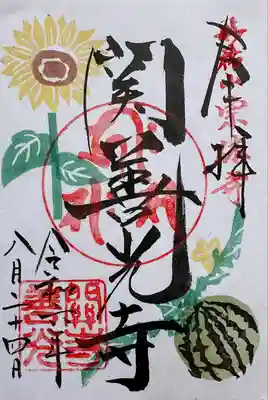 奉拝
関善光寺
令和二年
八月二十四日